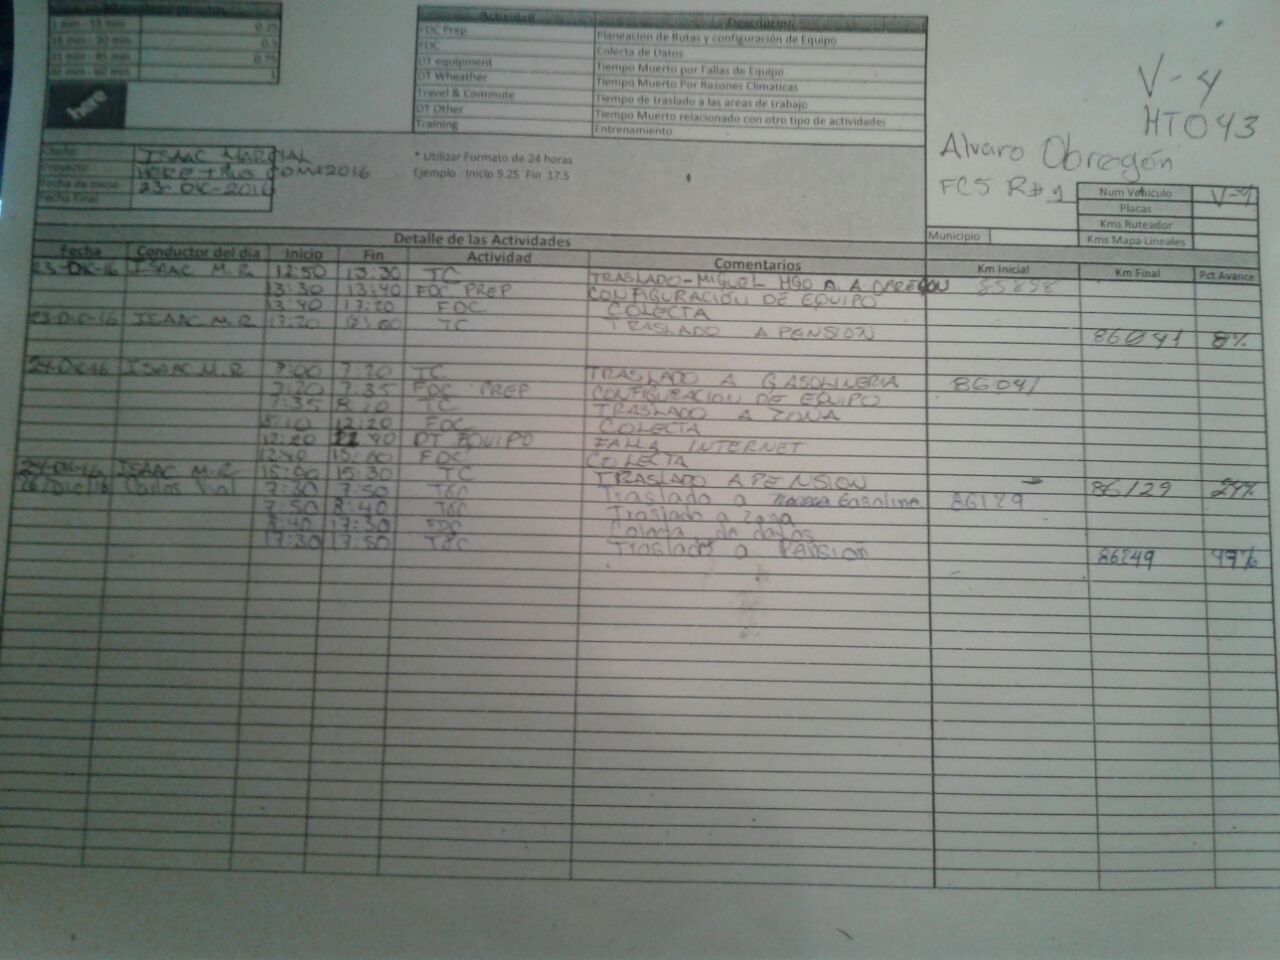 1 min - 15 min 0.25
16 min - 30 min 0.5
31 min - 45 min 0.75
46 min - 60 min 1
here
Actividad Descripcion
FDC Prep Planeacion de Rutas y configuración de Equipo
FDC Colecta de Datos
DT equipment Tiempo Muerto por Fallas de Equipo
DT Wheather Tiempo Muerto Por Razones Climaticas
Travel & Commute Tiempo de traslado a las areas de trabajo
DT Other Tiempo Muerto relacionado con otro tipo de actividades
Training Entrenamiento
V-4
MT043
Alvaro Obregón
FCS R#1
ISAAC MARCIAL
Proyecto
Fecha de Inicio 23-DIC-2016
Fecha Final
* Utilizar Formato de 24 horas
Ejemplo Inicio 9.25 Fin 17.5
Num Vehiculo V-4
Placas
Kms Ruteador
Municipio Kms Mapa Lineales
Detalle de las Actividades
Fecha Conductor del dia Inicio Fin Actividad Comentarios Km Inicial Km Final Pct Avance
23-DIC-16 ISAAC M.R. 12:50 13:30 TC TRASLADO-MIGUEL HGO A A.OBREGON 85898
13:30 13:40 FDC PREP CONFIGURACIÓN DE EQUIPO
13:40 17:20 FDC COLECTA
23-DIC-16 ISAAC M.R 17:20 TC TRASLADO A PENSION 86041 8%
24-DIC-16 ISAAC M.R 7:00 7:20 TC TRASLADO A GASOLINERIA 86041
7:20 7:35 FDC PREP CONFIGURACION DE EQUIPO
7:35 8:10 TC TRASLADO A ZONA
8:10 12:20 FDC COLECTA
12:20 12:40 DT EQUIPO FALLA INTERNET
12:40 15:00 FDC COLECTA
24-DIC-16 ISAAC M.R 15:00 15:30 TC TRASLADO A PENSION 86129 24%
26/Dic/16 Carlos 7:30 7:50 T&C Traslado a Gasoline 86129
7:50 8:40 T&C Traslado a Zona
8:40 17:30 FDC Colecta de datos
17:30 17:50 T&C Traslado a Pension 86249 47%